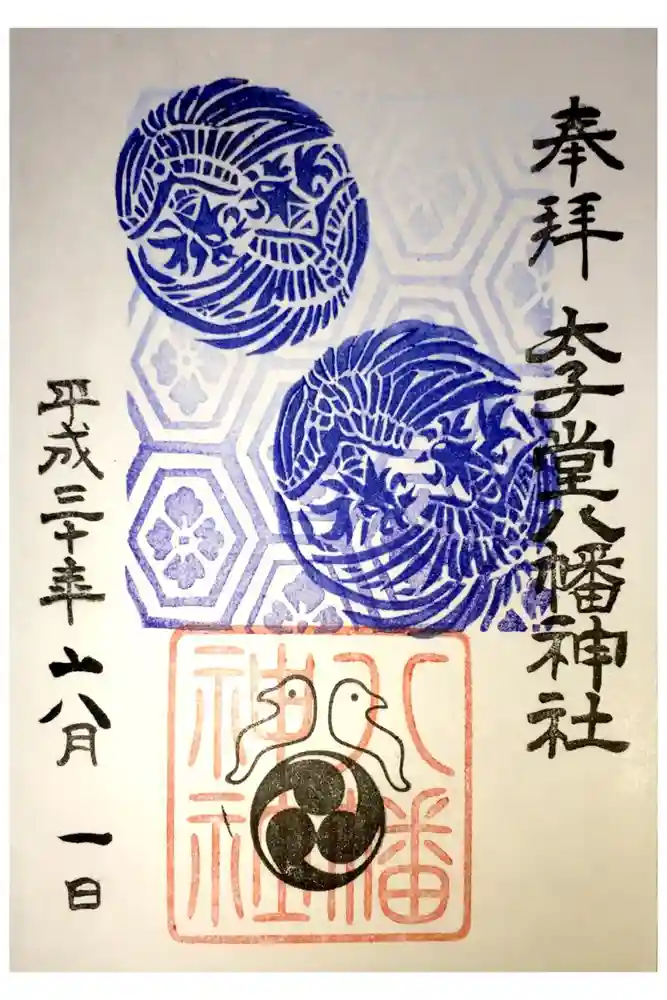 奉拝 太子堂八幡神社
八幡
神社
平成三十年 六月 一日